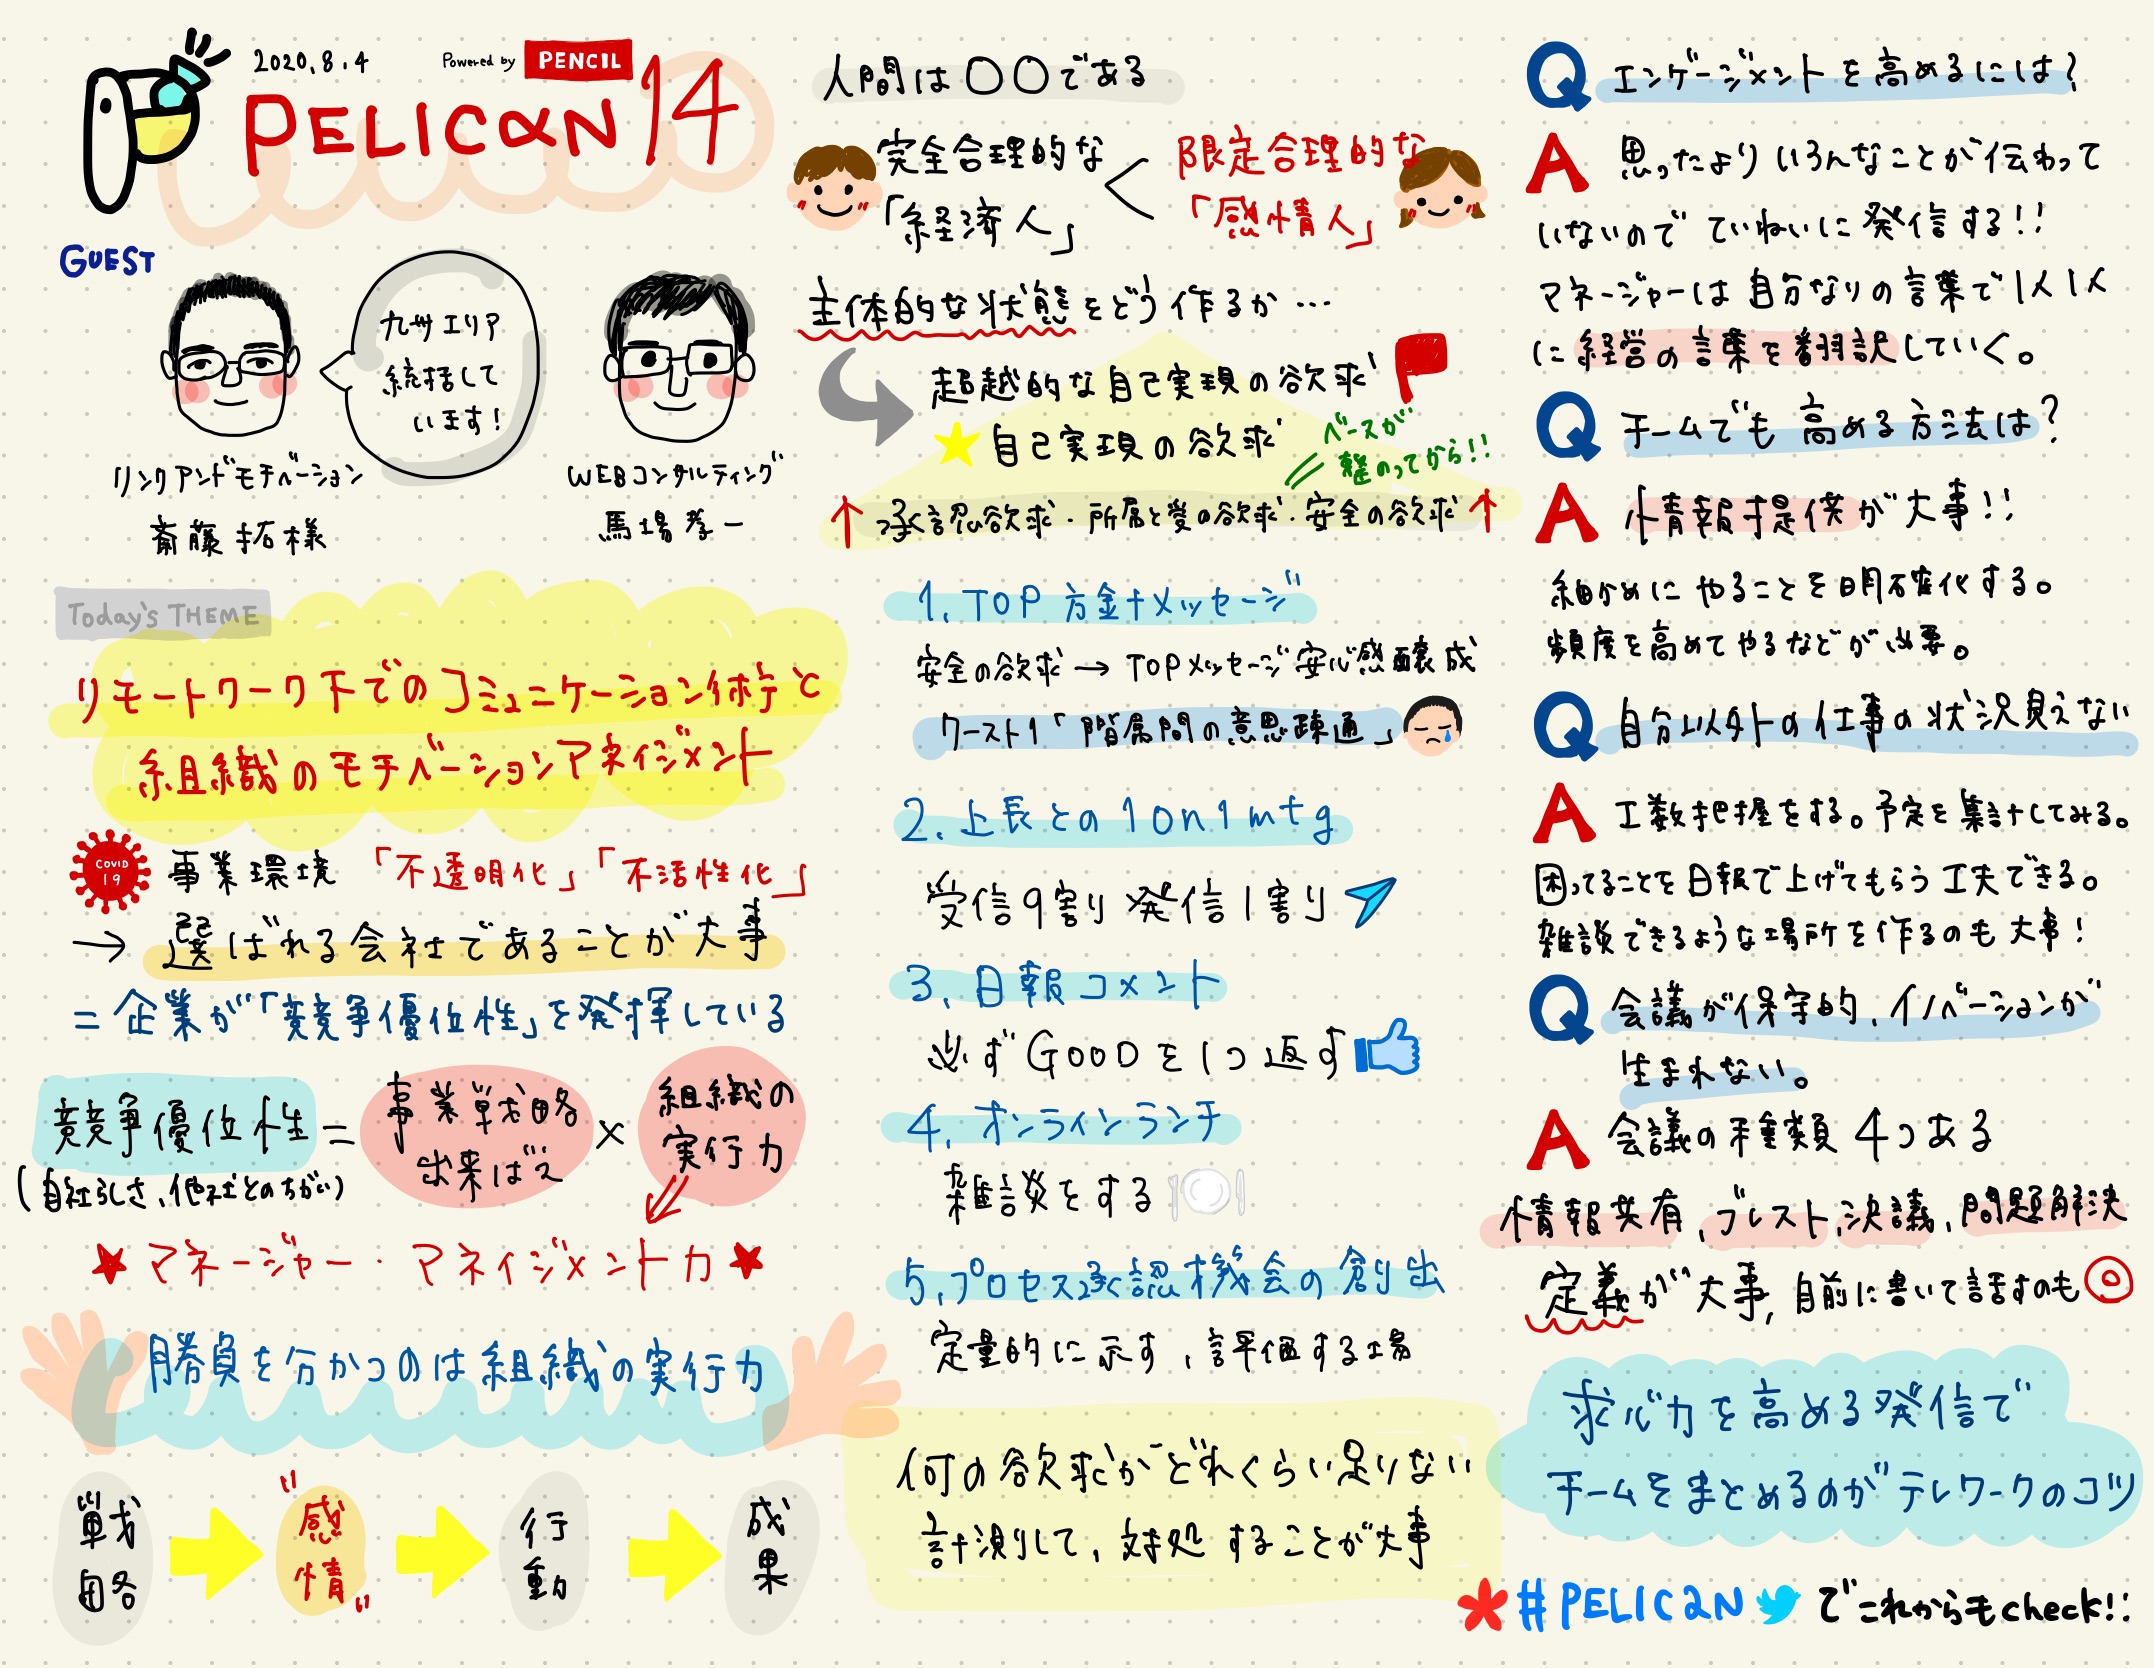 2020.8.4
Powered by PENCIL
PELICAN 14
GUEST
九州エリア
統括して
います!
リンクアンドモチベーション
斎藤拓様
WEBコンサルティング
馬場孝一
Today's THEME
リモートワーク下でのコミュニケーション術と
組織のモチベーションマネイジメント
COVID
19
事業環境「不透明化」「不活性化」
→ 選ばれる会社であることが大事
= 企業が「競争優位性」を発揮している
競争優位性 = 事業戦略出来ばえ × 組織の実行力
(自社らしさ、他社とのちがい)
★マネージャー・マネイジメント力★
勝負を分かつのは組織の実行力
戦略
"感情"
行動
成果
人間は〇〇である
完全合理的な「経済人」 < 限定合理的な「感情人」
主体的な状態をどう作るか…
超越的な自己実現の欲求
★自己実現の欲求
ベースが
整のってから!!
↑承認欲求・所属と愛の欲求・安全の欲求↑
1. TOP方金+メッセージ
安全の欲求→TOPメッセージ安心感醸成
ワースト1「階層間の意思疎通」
2. 上長との1on1mtg
受信9割り 発信1割り
3. 日報コメント
必ずGOODを1つ返す
4. オンラインランチ
雑談をする
5. プロセス承認機会の創り出
定量的に示す、評価する場
何の欲求がどれくらい足りない
計測して、対処することが大事
Q エンゲージメントを高めるには?
A 思ったよりいろんなことが伝わって
いないのでていねいに発信する!!
マネージャーは自分なりの言葉で1人1人
に経営の言葉を翻訳していく。
Q チームでも高める方法は?
A 情報提供が大事!!
細かめにやることを明確化する。
頻度を高めてやるなどが必要。
Q 自分以外の仕事の状況見えない
A 工数把握をする。予定を集計してみる。
困ってることを日報で上げてもらう工夫できる。
雑談できるような場所を作るのも大事!
Q 会議が保守的、イノベーションが
生まれない。
A 会議の種類4つある
情報共有、ブレスト、決議、問題解決
定義が大事、自前に書いて話すのも◎
求心力を高める発信で
チームをまとめるのがテレワークのコツ
*#PELICAN でこれからもcheck!!